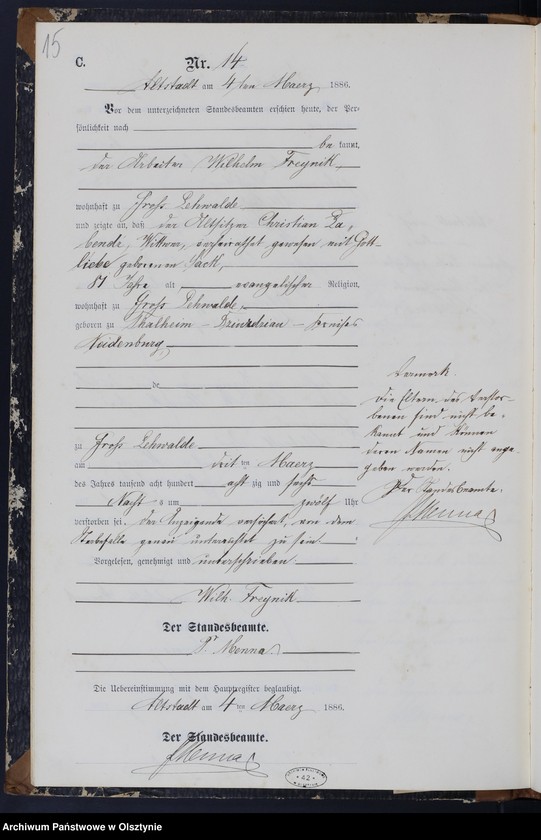 15
C. Nr. 14
Altstadt am 4 ten Maerz 1886.
Vor dem unterzeichneten Standesbeamten erschien heute, der Per-
sönlichkeit nach
be kannt,
der Arbeiter Wilhelm Freynik
wohnhaft zu Gross Lehwalde
und zeigte an, daß der Altsitzer Christian
Wittwer, verheirathet gewesen mit Gott-
liebe geborenen Jack,
81 Jahre alt evangelischer Religion,
wohnhaft zu Gross Lehwalde,
geboren zu Thalheim Kreises
Neidenburg,
de
zu Gross Lehwalde
am dritten Maerz
des Jahres tausend acht hundert acht zig und sechs
Nachts um zwölf Uhr
verstorben sei. Der Anzeigende versichert, von dem
Sterbefalle genau unterrichtet zu sein.
Vorgelesen, genehmigt und unterschrieben.
Wilh. Freynik
Der Standesbeamte.
Menna.
Die Uebereinstimmung mit dem Hauptregister beglaubigt.
Altstadt am 4 ten Maerz 1886.
Der Standesbeamte.
Menna
Vermerk.
Die Eltern des Verstor-
benen sind nicht be-
kannt und können
deren Namen nicht ange-
geben werden.
Der Standesbeamte.
Menna
42
Archiwum Państwowe w Olsztynie